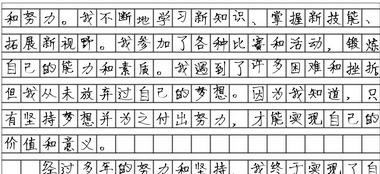 和努力。我不断地学习新知识、掌握新技能、
拓展新视野。我参加了各种比赛和活动，锻炼
自己的能力和素质。我遇到了许多困难和挫折
但我从未放弃过自己的梦想。因为我知道，只
有坚持梦想并为之付出努力，才能实现自己的
价值和意义。
经过多年的努力和坚持，我终于实现了自